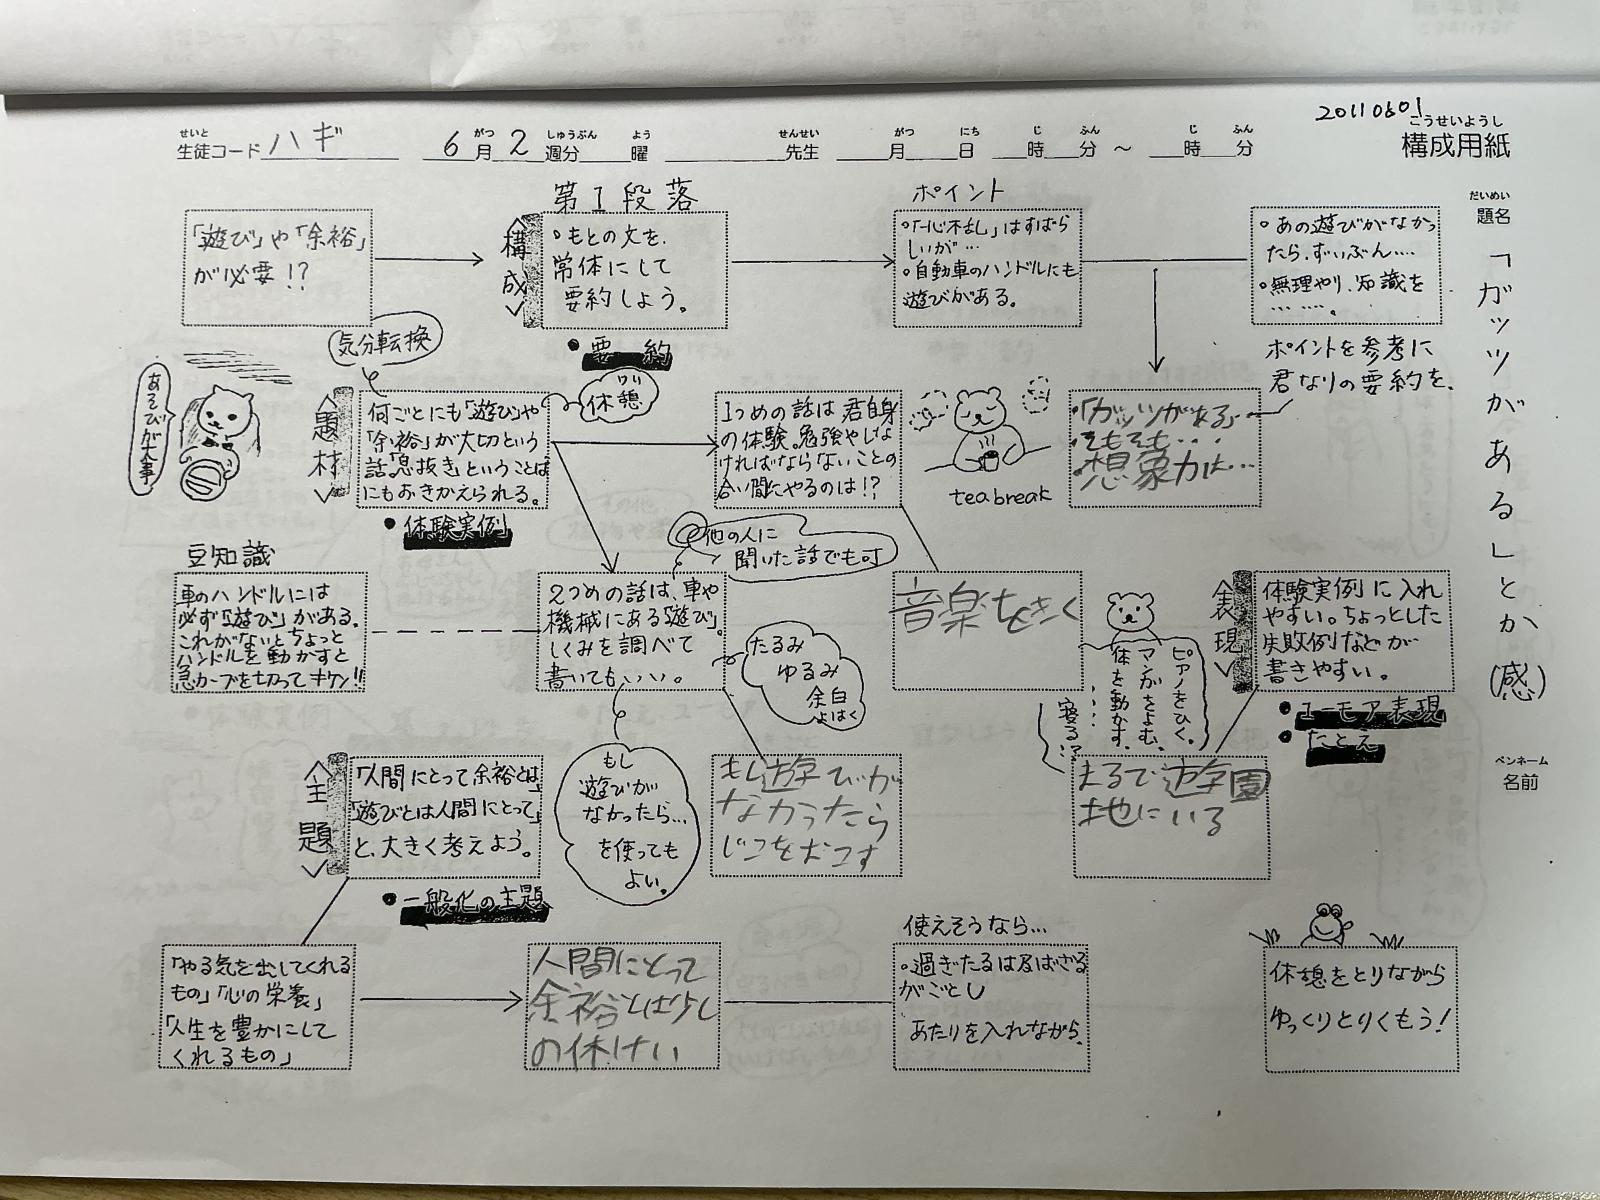 20110601
こうせいようし
構成用紙
せいと がつ しゅうぶん よう せんせい がつ にち じ ふん じ ふん
生徒コード ハギ 6月2週分 曜 先生 月 日 時 分 ～ 時 分
だいめい
題名
「ガッツがある」とか(感)
ペンネーム
名前
「遊び」や「余裕」
が必要!?
第1段落
<構成>
・もとの文を、
常体にして
要約しよう。
●要約
ポイント
・「一心不乱」はすばら
しいが…
・自動車のハンドルにも
遊びがある。
・あの遊びがなかっ
たら、ずいぶん……
・無理やり、知識を
……。
ポイントを参考に
君なりの要約を。
気分転換
あそびが大事
<題材>
何ごとにも「遊び」や
「余裕」が大切という
話「息抜き」ということば
にもおきかえられる。
●体験実例
休憩
1つめの話は君自身
の体験。勉強やしな
ければならないことの
合い間にやるのは!?
teabreak
・「ガッツがある」
・そもそも・・・
・想象力は…
豆知識
車のハンドルには
必ず「遊び」がある。
これがないとちょっと
ハンドルを動かすと
急カーブを切ってキケン!!
2つめの話は、車や
機械にある「遊び」。
しくみを調べて
書いてもいい。
他の人に
聞いた話でも可
たるみ
ゆるみ
余白
よはく
音楽をきく
ピアノをひく。
マンガをよむ。
体を動かす。
・・・・
寝る!?
<表現>
体験実例に入れ
やすい。ちょっとした
失敗例などが
書きやすい。
●ユーモア表現
●たとえ
<主題>
「人間にとって余裕とは」
「遊びとは人間にとって」
と、大きく考えよう。
●一般化の主題
もし
遊びが
なかったら…
を使っても
よい。
もし遊びが
なかったら
じこをおこす
まるで遊園
地にいる
「やる気を出してくれる
もの」「心の栄養」
「人生を豊かにして
くれるもの」
人間にとって
余裕とは少し
の休けい
使えそうなら…
・過ぎたるは及ばざる
がごとし
あたりを入れながら。
休憩をとりながら
ゆっくりとりくもう!